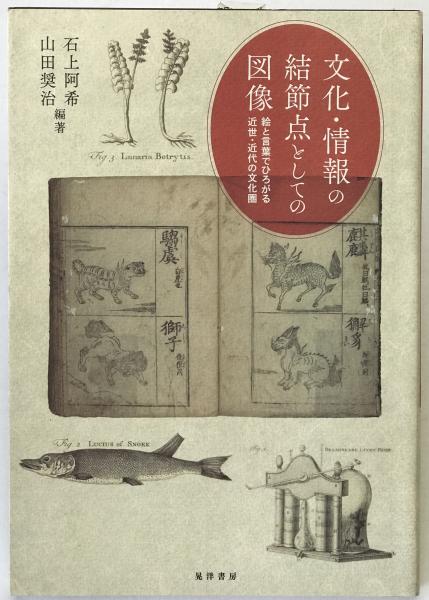 文化・情報の
結節点としての
図像
絵と言葉でひろがる
近世・近代の文化圏
石上阿希
山田奨治
編著
Fig. 3 Lunaria Botrytis.
騶虞
麒麟
獅子
獬豸
Fig. 2 LUCIUS of SNOEK
晃洋書房